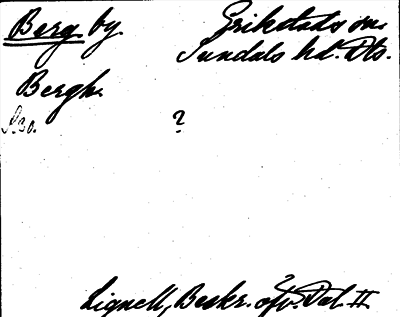 Berg by. Erikstads sn.
Sundals hd. Dls.
Bergh.
S. 30.
?
Lignell, Beskr. öfv. Dal II